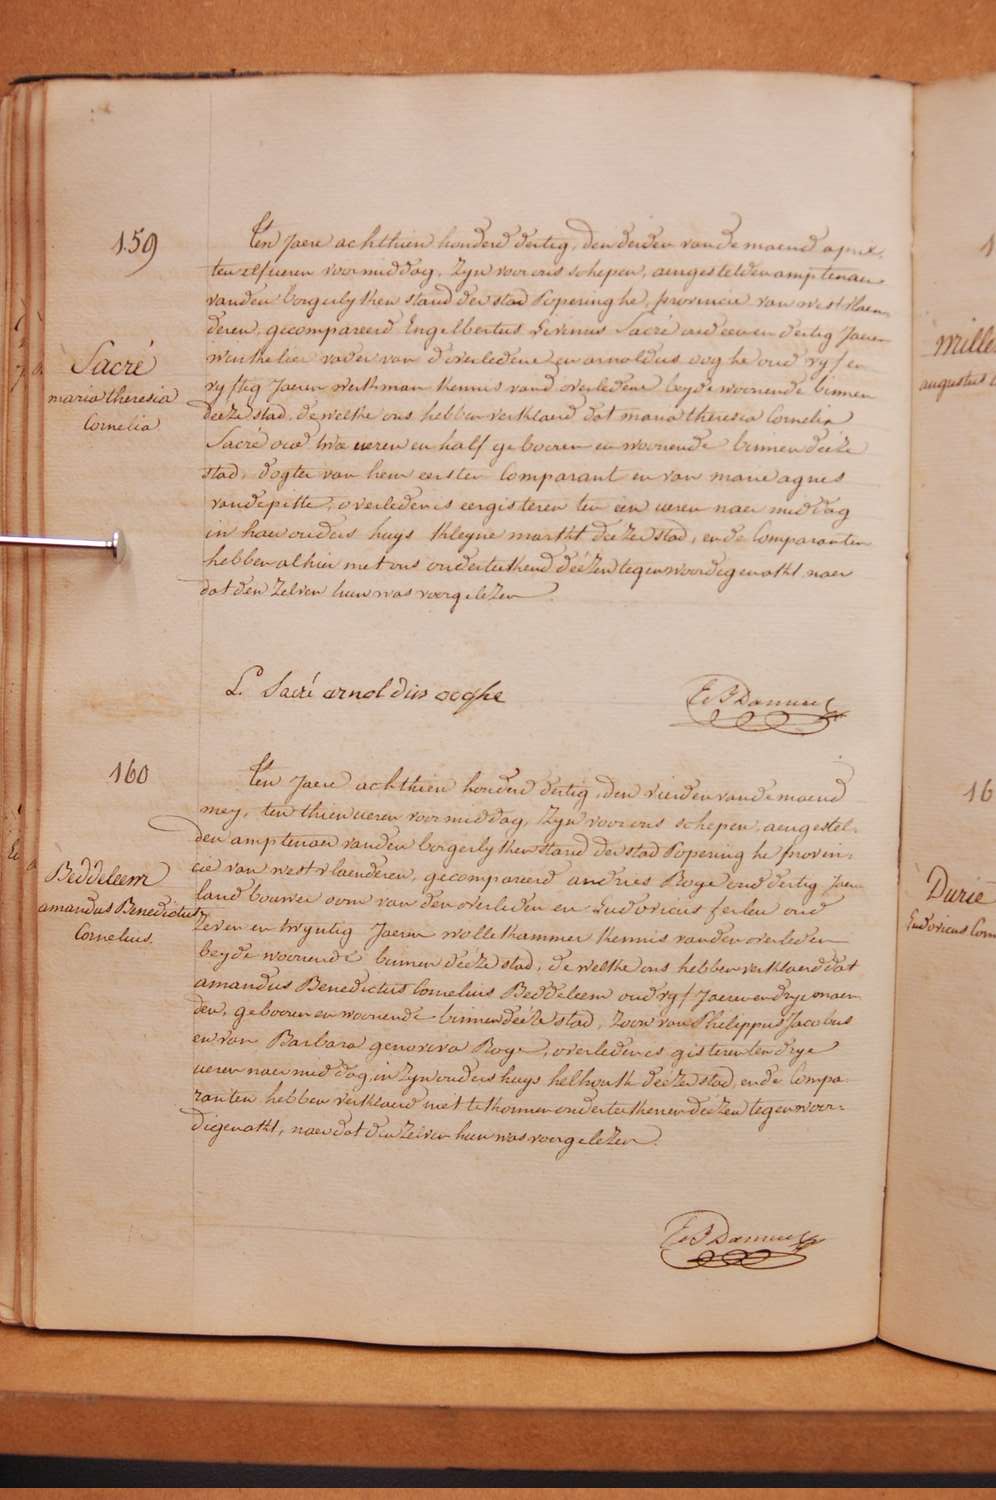 159
Sacré
maria theresia
Cornelia
Ten Jaere achthien honderd dertig, den derden vande maend april,
ten elf ueren voormiddag, Zyn voor ons schepen, aengestelden amptenaer
vanden borgerlyken stand der stad Poperinghe, provincie van westvlaen-
deren, gecompareerd Engelbertus Livinus Sacré oud een en dertig Jaeren
winkelier vader van d'overledene en arnoldus ooghe oud vyf en
vyftig Jaeren werkman kennis vand'overledene beyde woonende binnen
deeze stad, de welke ons hebben verklaerd dat maria theresia Cornelia
Sacré oud twa ueren en half gebooren en woonende binnen deeze
stad, dogter van hem eersten Comparant en van marie agnes
vandepitte, overleden is eergisteren ten een ueren naer middag
in haer ouders huys kleyne markt deezer stad, ende Comparanten
hebben alhier met ons onderteekend deezen tegenwoordigen akt, naer
dat den Zelven hun was voorgelezen.
L. Sacré arnoldus ooghe
160
Beddeleem
amandus Benedictus
Cornelius.
Ten Jaere achthien honderd dertig, den vierden vande maend
mey, ten thien ueren voormiddag, Zyn voor ons schepen, aengestel-
den amptenaer vanden borgerlyken stand der stad Poperinghe provin-
cie van westvlaenderen, gecompareerd andries Roye oud dertig Jaeren
landbouwer oom van den overleden en Ludovicus ferleu oud
Zeven en twyntig Jaeren wollekammer kennis vanden overleden
beyde woonende binnen deeze stad, de welke ons hebben verklaerd dat
amandus Benedictus Cornelius Beddeleem oud vyf Jaeren en drye maen-
den, gebooren en woonende binnen deeze stad, Zoon van Philippus Jacobus
en van Barbara genoveva Roye, overleden is gisteren ten drye
ueren naer middag, in Zyn ouders huys helhoek deeze stad, ende Compa-
ranten hebben verklaerd niet te konnen onderteekenen deezen tegenwoor-
digen akt, naer dat den Zelven hun was voorgelezen.
mille
augustus
16
Durie
Ludovicus Corn